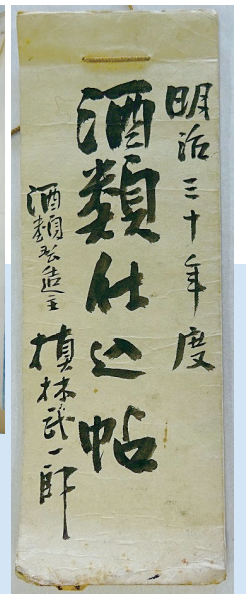 明治三十年度
酒類仕込帖
酒類製造主 槙林武一郎